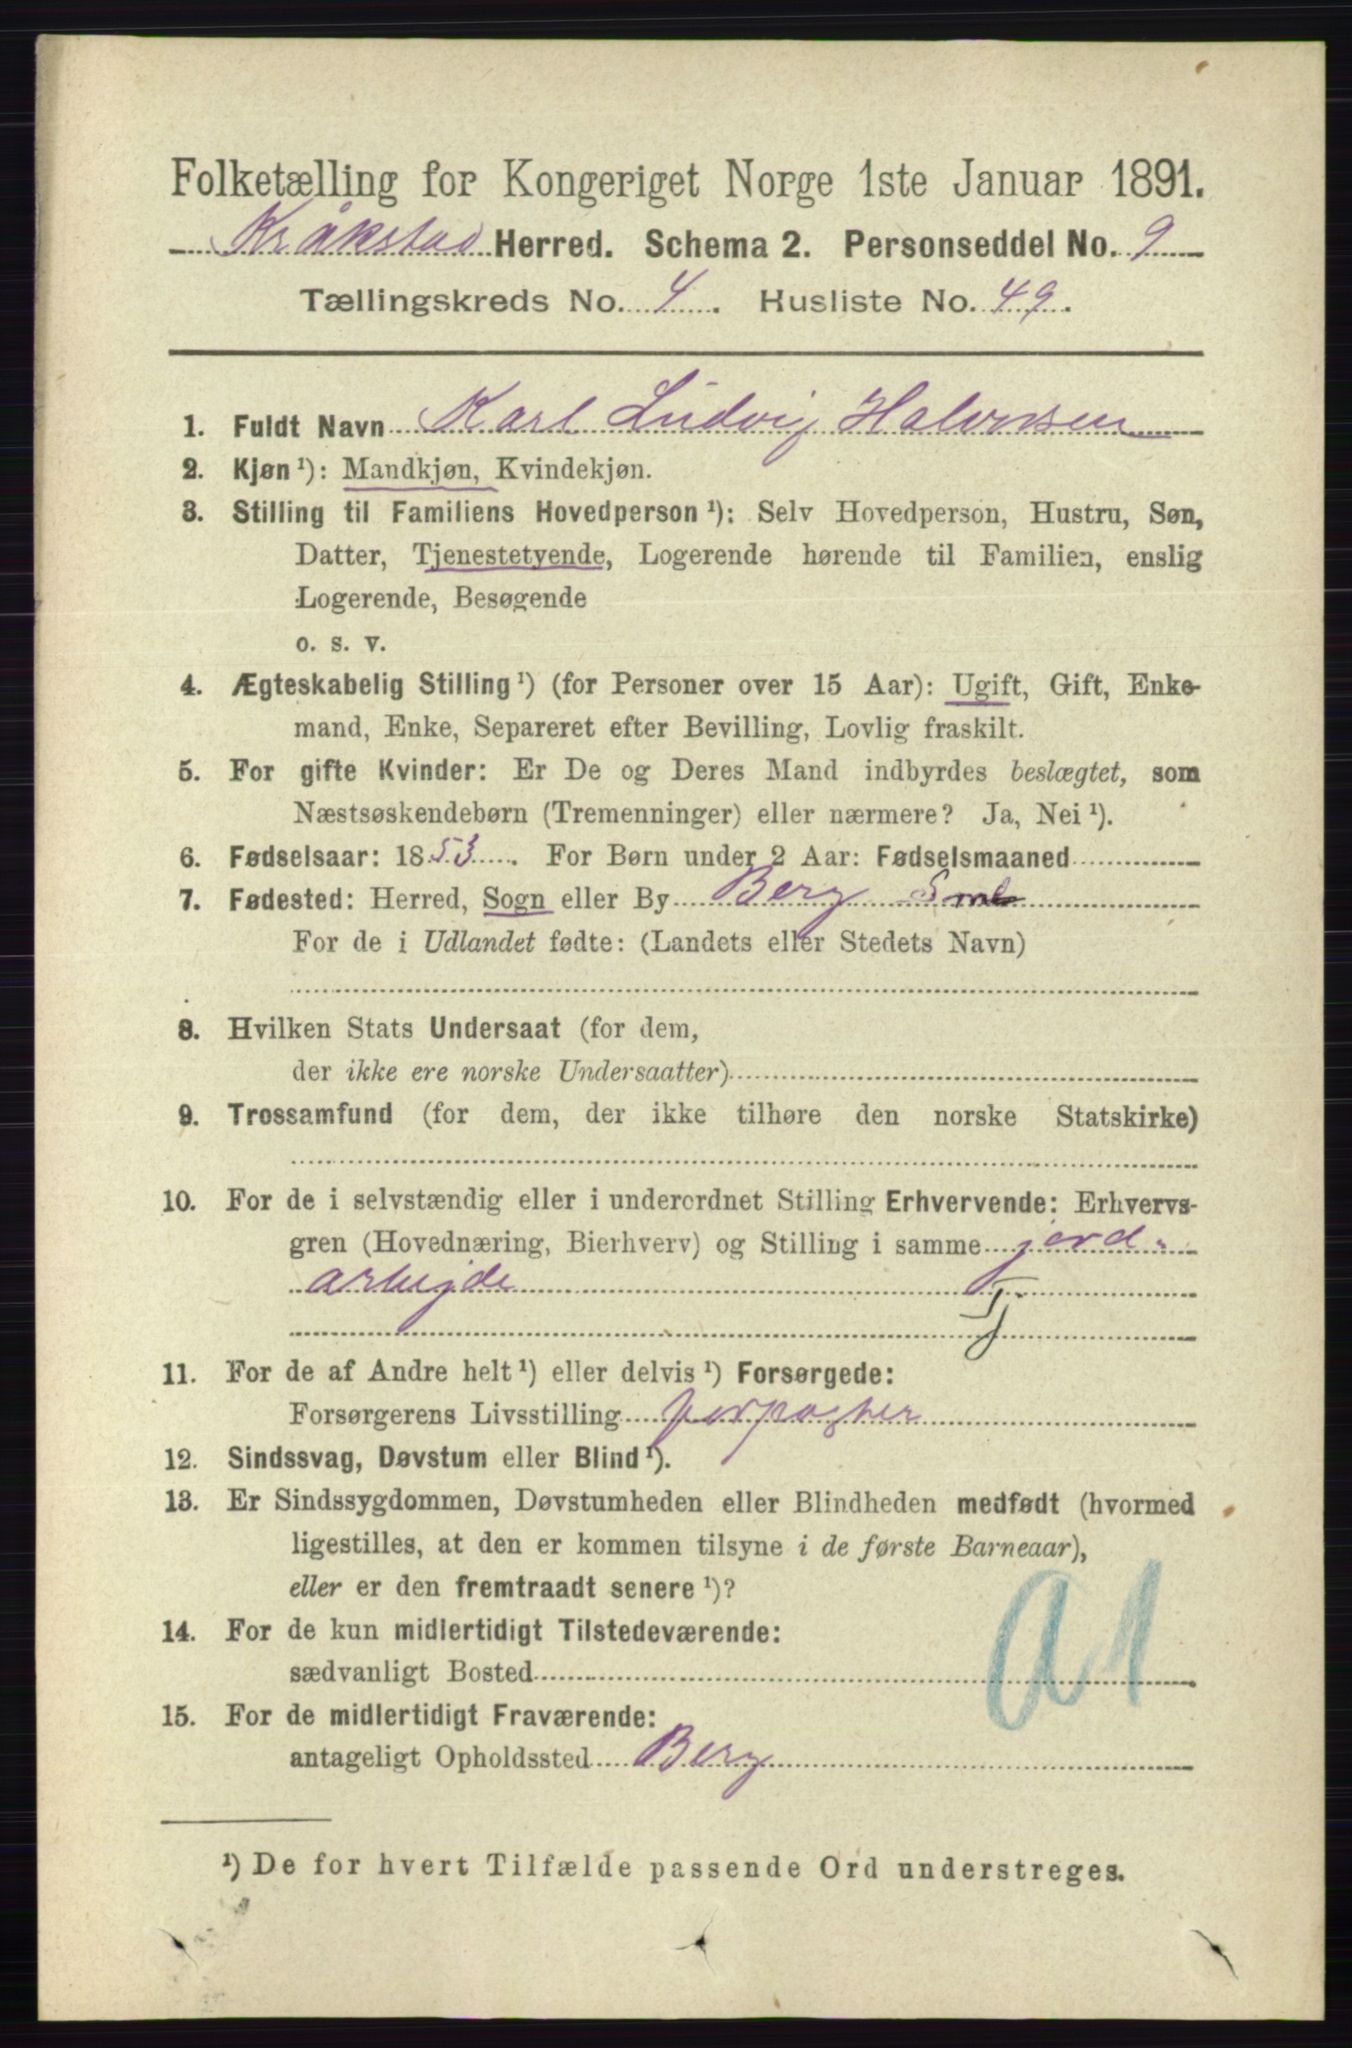 Folketælling for Kongeriget Norge 1ste Januar 1891.
Kråkstad Herred. Schema 2. Personseddel No. 9
Tællingskreds No. 4. Husliste No. 49.
1. Fuldt Navn Karl Ludvig Halvorsen
2. Kjøn ¹): Mandkjøn, Kvindekjøn.
3. Stilling til Familiens Hovedperson ¹): Selv Hovedperson, Hustru, Søn,
Datter, Tjenestetyende, Logerende hørende til Familien, enslig
Logerende, Besøgende
o. s. v.
4. Ægteskabelig Stilling ¹) (for Personer over 15 Aar): Ugift, Gift, Enke-
mand, Enke, Separeret efter Bevilling, Lovlig fraskilt.
5. For gifte Kvinder: Er De og Deres Mand indbyrdes beslægtet, som
Næstsøskendebørn (Tremenninger) eller nærmere? Ja, Nei ¹).
6. Fødselsaar: 1853. For Børn under 2 Aar: Fødselsmaaned
7. Fødested: Herred, Sogn eller By Berg Sml
For de i Udlandet fødte: (Landets eller Stedets Navn)
8. Hvilken Stats Undersaat (for dem,
der ikke ere norske Undersaatter)
9. Trossamfund (for dem, der ikke tilhøre den norske Statskirke)
10. For de i selvstændig eller i underordnet Stilling Erhvervende: Erhvervs-
gren (Hovednæring, Bierhverv) og Stilling i samme jord-
arbejde
Tj
11. For de af Andre helt ¹) eller delvis ¹) Forsørgede:
Forsørgerens Livsstilling forpagter
12. Sindssvag, Døvstum eller Blind ¹).
13. Er Sindssygdommen, Døvstumheden eller Blindheden medfødt (hvormed
ligestilles, at den er kommen tilsyne i de første Barneaar),
eller er den fremtraadt senere ¹)?
14. For de kun midlertidigt Tilstedeværende:
sædvanligt Bosted
A1
15. For de midlertidigt Fraværende:
antageligt Opholdssted Berg
¹) De for hvert Tilfælde passende Ord understreges.